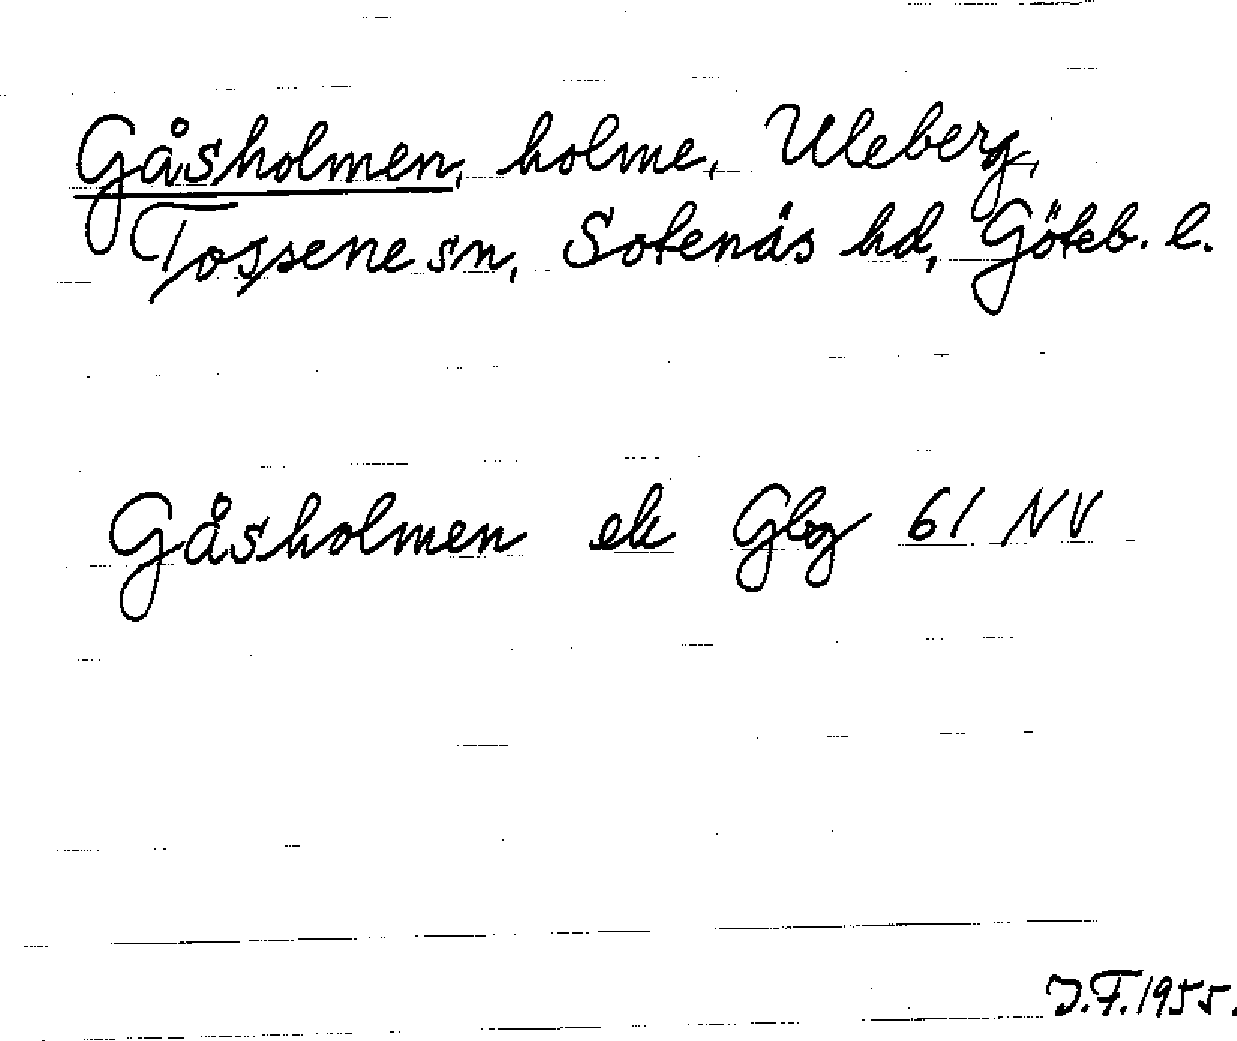 Gåsholmen, holme, Uleberg,
Tossene sn, Sotenäs hd, Göteb. l.
Gåsholmen ek Gbg 61 NV
J.F. 1955.